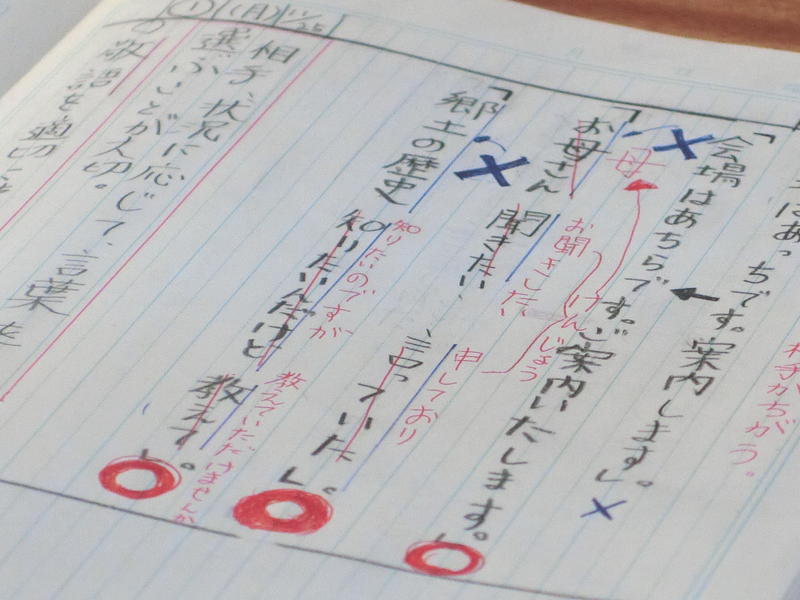 はあっちです。案内します。」
手がちがう。
「会場はあちらです。ご案内いたします。」
「お母さん 聞きたい、言っていた。」
母
お聞きしたい
けんじょう
申しており
「郷土の歴史 知りたいんだけど 教えて。」
知りたいのですが
教えていただけませんか
相手、状況に応じて、言葉を
選ぶことが大切。
① (月) 11/25
の敬語を適切